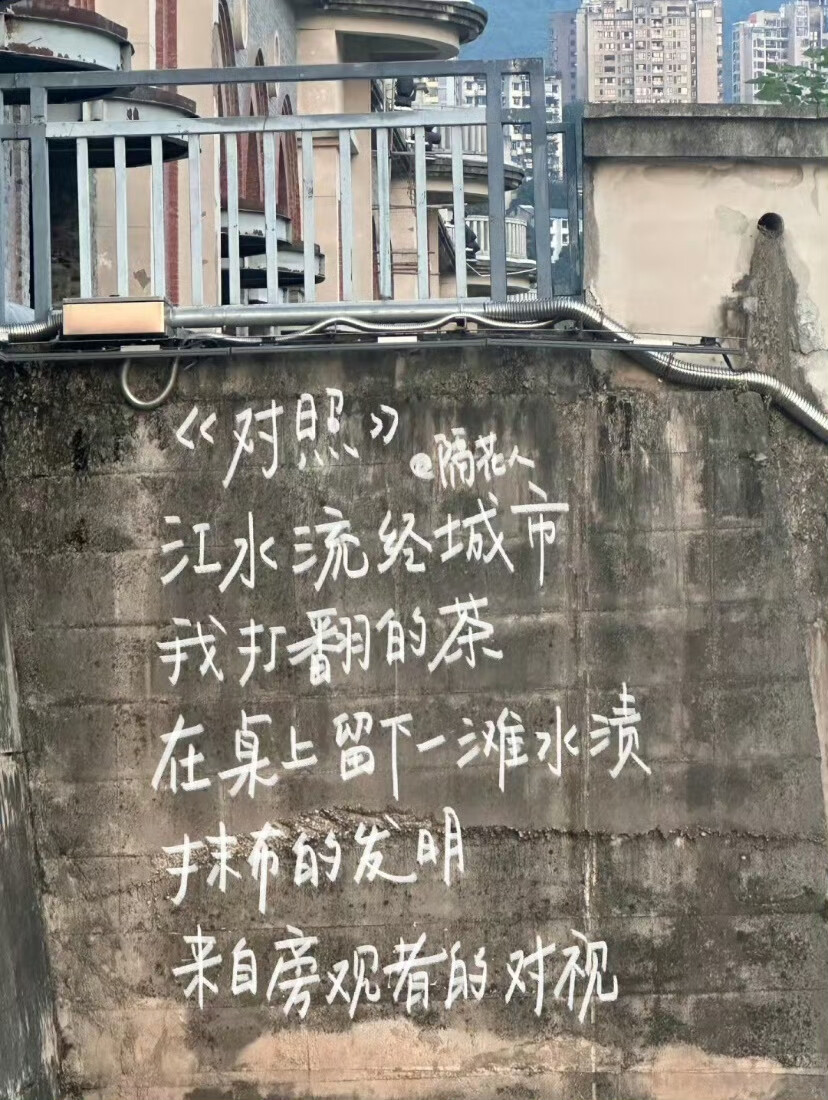 《对照》
@隔花人
江水流经城市
我打翻的茶
在桌上留下一滩水渍
抹布的发明
来自旁观者的对视